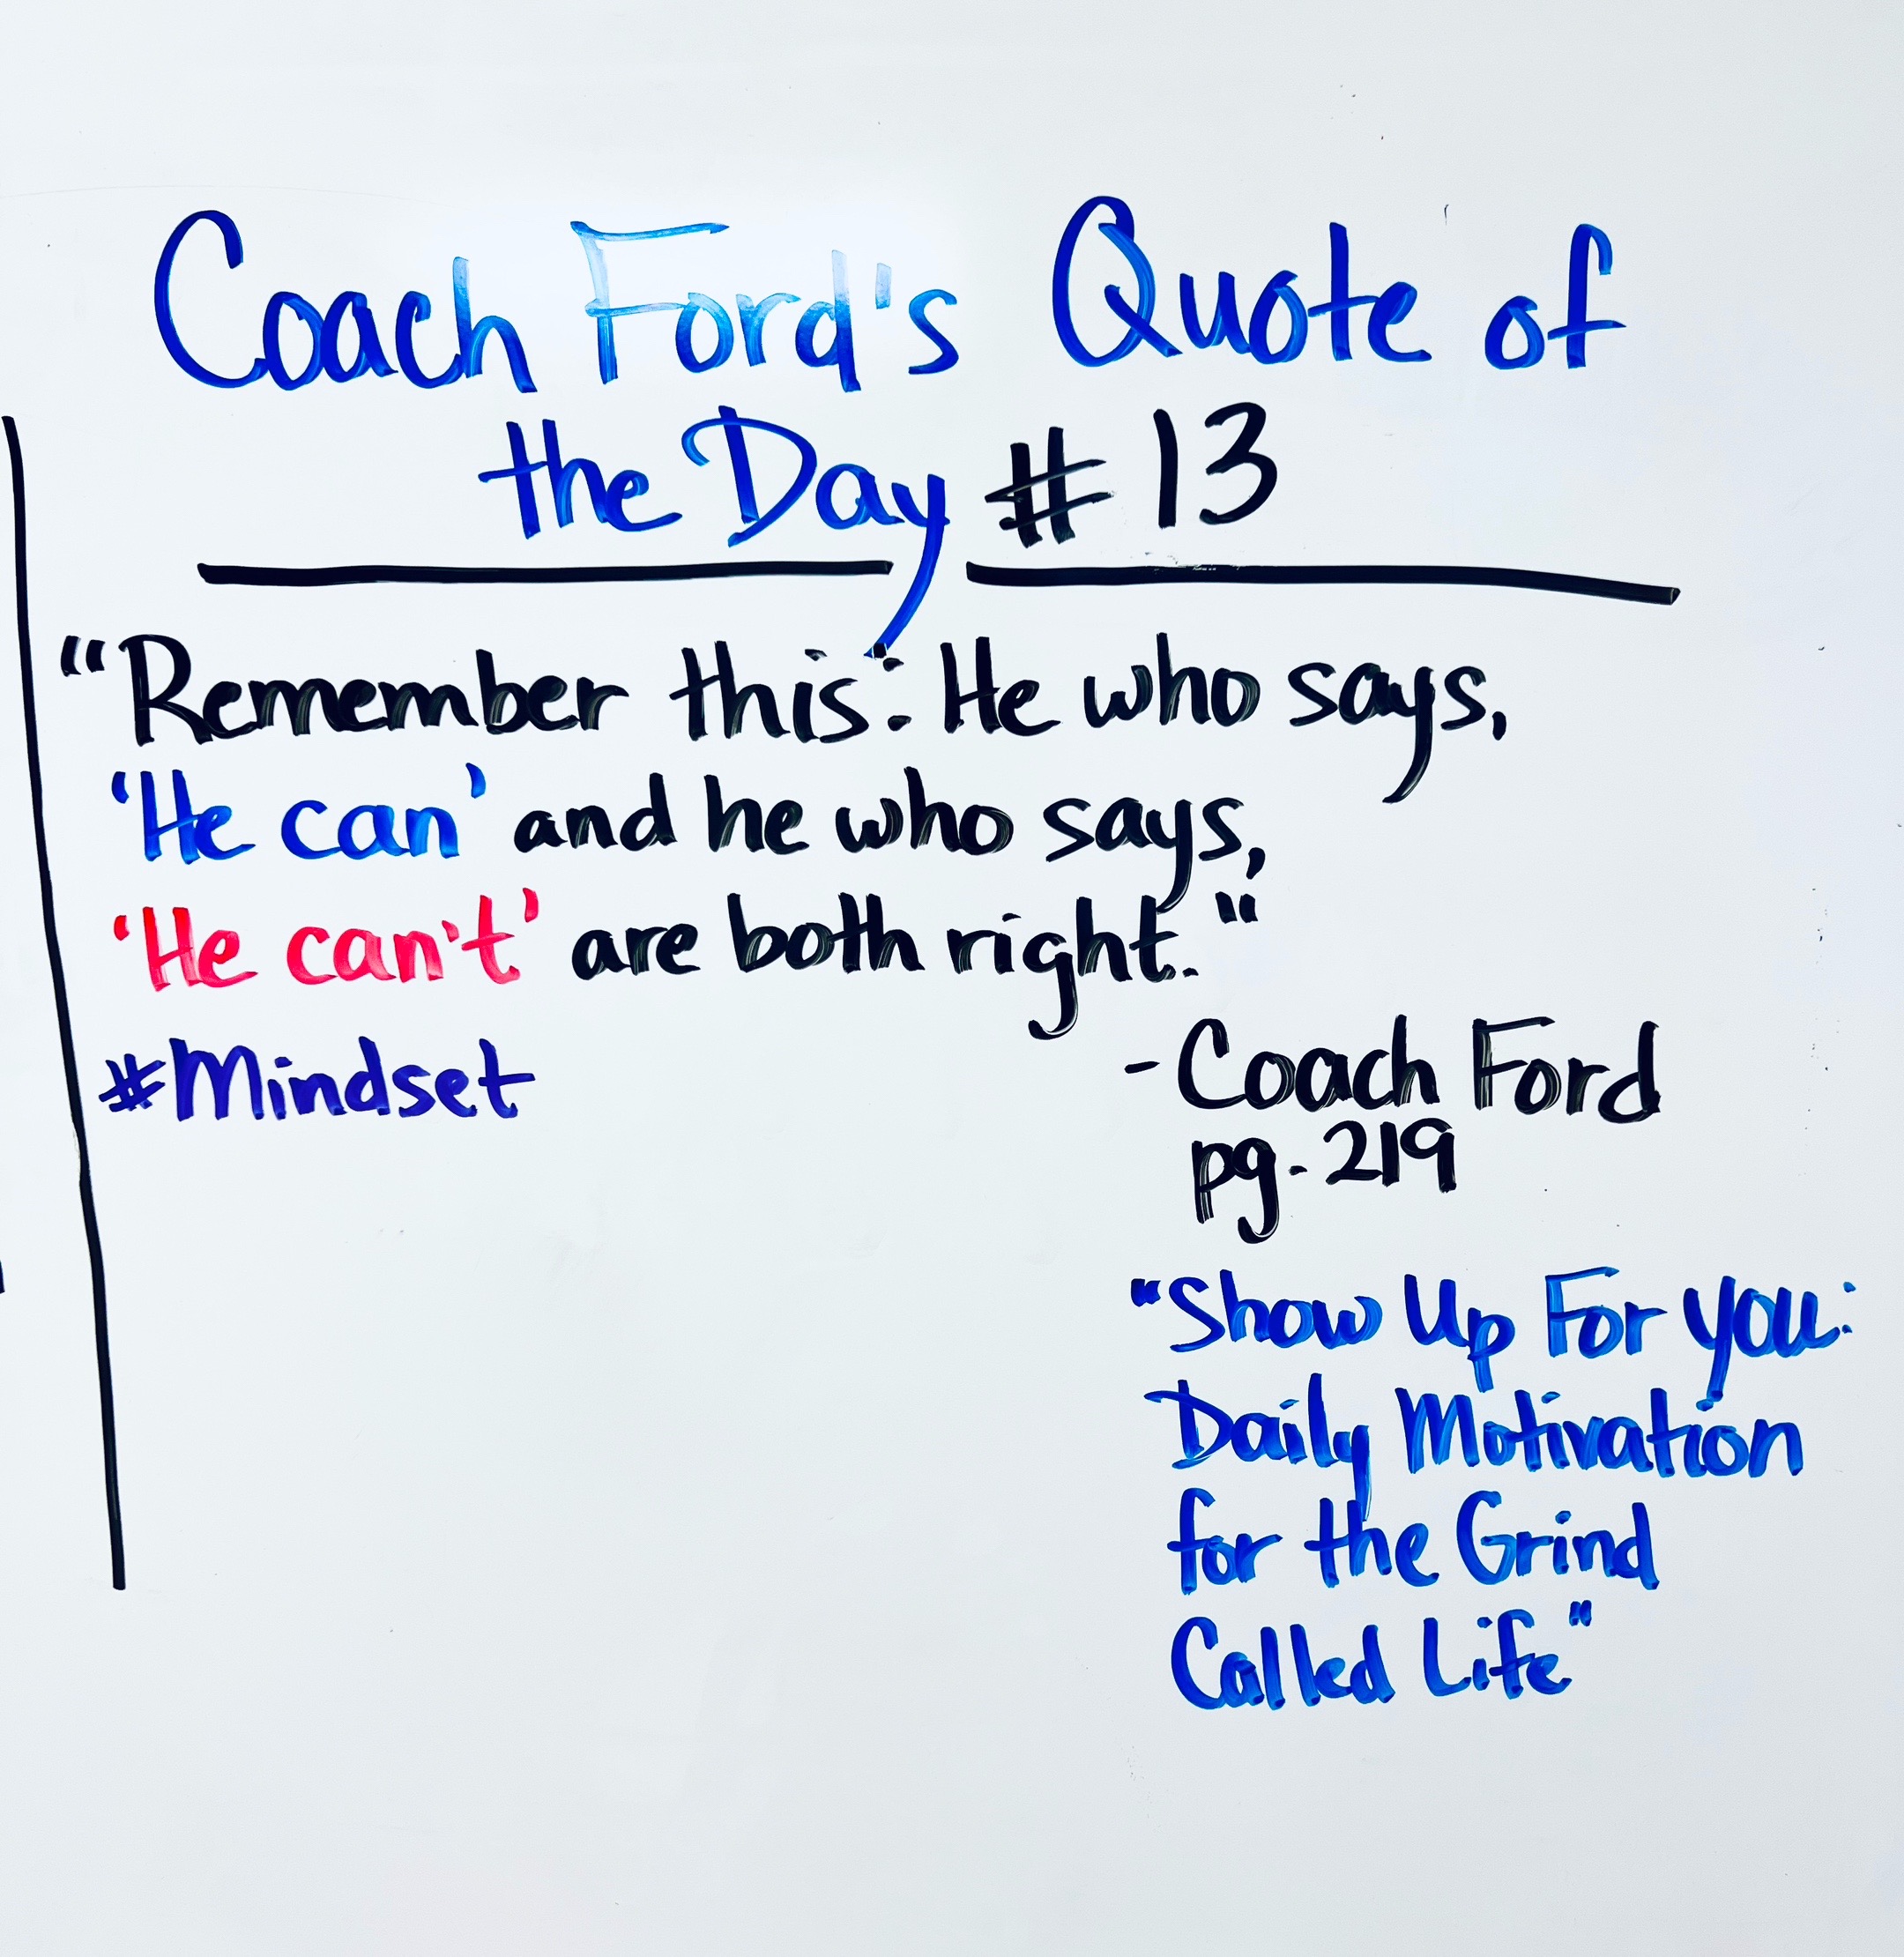 Coach Ford's Quote of
the Day # 13
"Remember this: He who says,
'He can' and he who says,
'He can't' are both right."
#Mindset
- Coach Ford
pg. 219
"Show Up For You:
Daily Motivation
for the Grind
Called Life"